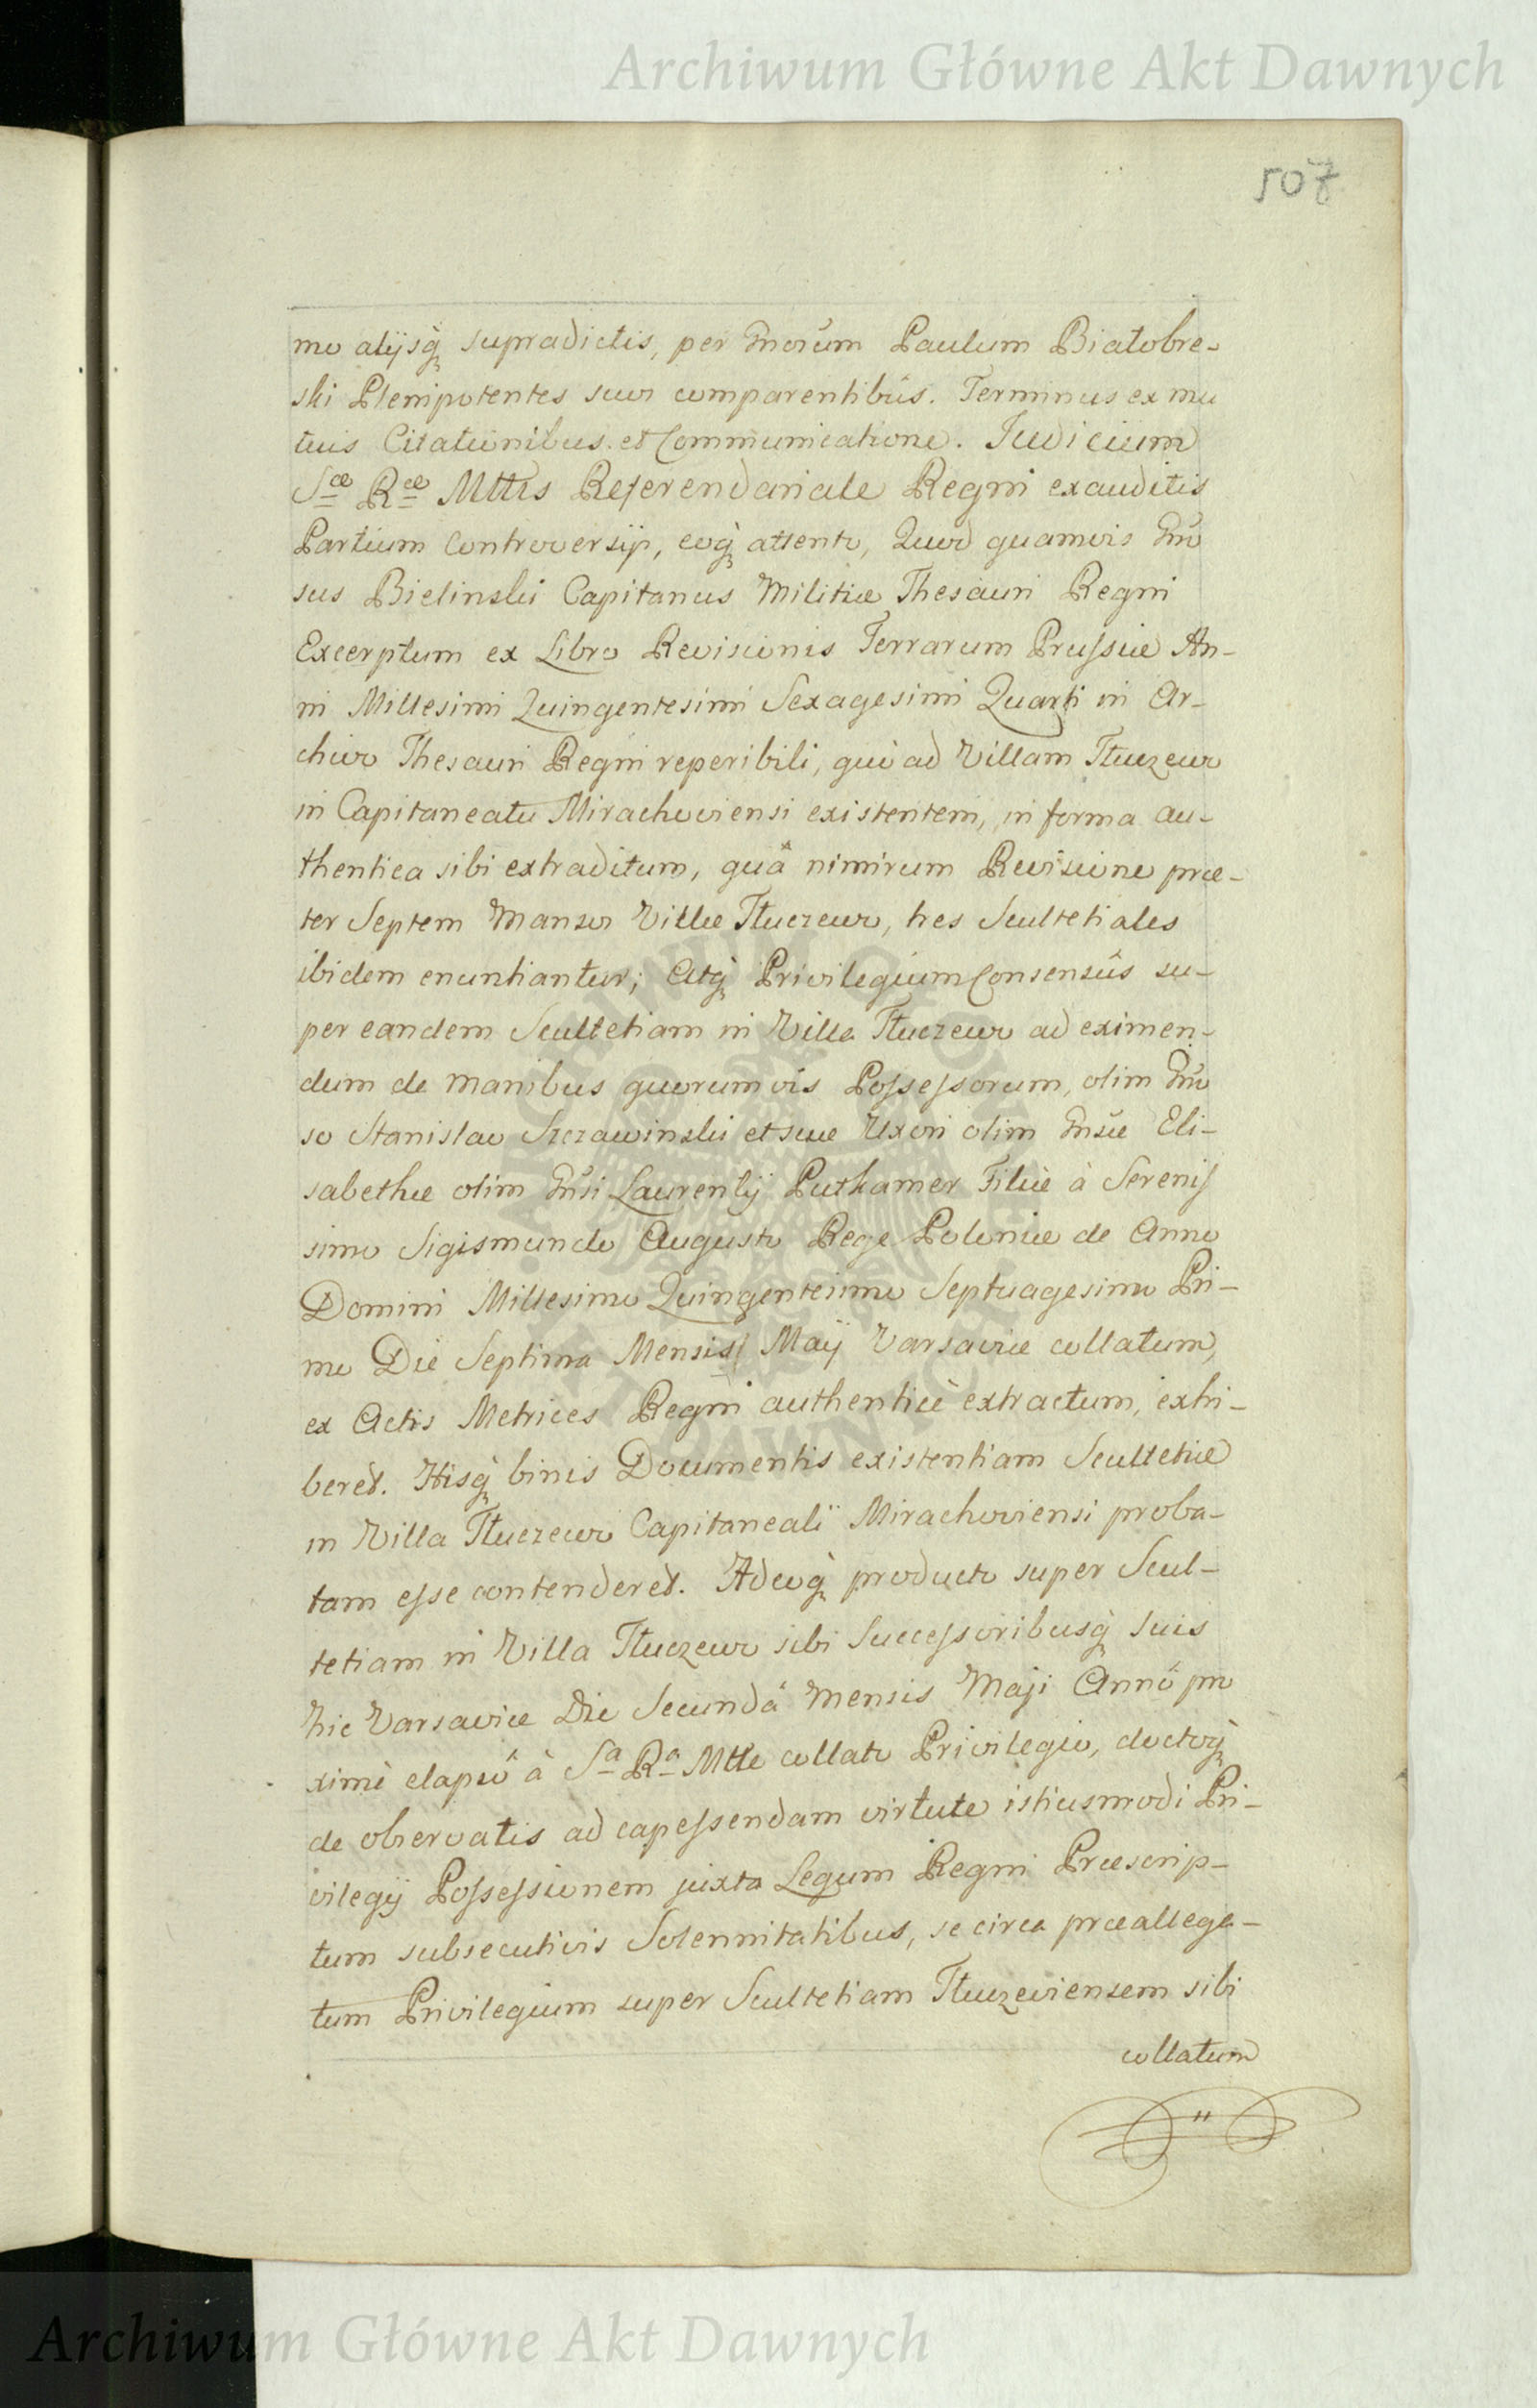 Archiwum Główne Akt Dawnych
507
mo alijsq̀ supradictis, per Gnosum Paulum Białobre-
ski Plenipotentes suos comparentibus. Terminus ex mu
tuis Citationibus. et Communicatione. Judicium
Sæ Ræ Mttis Referendariale Regni exauditis
Partium Controversijs, eoq̀ attento, Quod quamvis Gno
sus Bielinski Capitanus Militiæ Thesauri Regni
Excerptum ex Libro Revisionis Terrarum Prussiæ An-
ni Millesimi Quingentesimi Sexagesimi Quarti in Ar-
chivo Thesauri Regni reperibili, quò ad Villam Tłuczewo
in Capitaneatu Mirachoviensi existentem, in forma au-
thentica sibi extraditum, quâ nimirum Revisione præ-
ter Septem Mansos Villæ Tłuczewo, tres Scultetiales
ibidem enuntiantur; Atq̀ Privilegium Consensûs su-
per eandem Scultetiam in Villa Tłuczewo ad eximen-
dum de manibus quorumvis Possessorum, olim Gno
so Stanislao Szczawinski et suæ Uxori olim Gnsæ Eli-
sabethæ olim Gnsi Laurentij Puthamer Filiæ à Serenis
simo Sigismundo Augusto Rege Poloniæ de Anno
Domini Millesimo Quingentesimo Septuagesimo Pri-
mo Die Septima Mensis Maij Varsaviæ collatum,
ex Actis Metrices Regni authenticè extractum, exhi-
beret. Hisq̀ binis Documentis existentiam Scultetiæ
in Villa Tłuczewo Capitaneali Mirachoviensi proba-
tam esse contenderet. Adeoq̀ producto super Scul-
tetiam in Villa Tłuczewo sibi Successoribusq̀ suis
hic Varsaviæ Die Secundâ Mensis Maji Annô pro
ximè elapsô à Sa Ra Mtte collato Privilegio, doctoq̀
de observatis ad capessendam virtute istiusmodi Pri-
vilegij Possessionem juxta Legum Regni Præscrip-
tum subsecutivis Solennitatibus, se circa præallega-
tum Privilegium super Scultetiam Tłuczeviensem sibi
collatum
Archiwum Główne Akt Dawnych